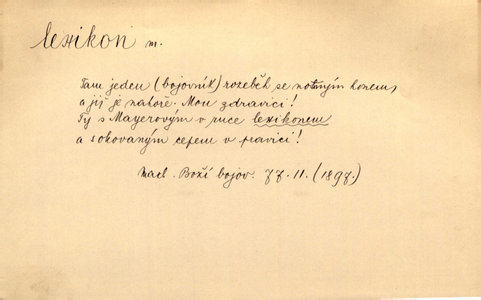 lexikon m.
Tam jeden (bojovník) rozeběh se notným honem,
a již je nahoře. Mou zdravici!
Ty s Mayerovým v ruce lexikonem
a s okovaným cepem v pravici!
Mach. Boží bojov. 77. 11. (1897.)